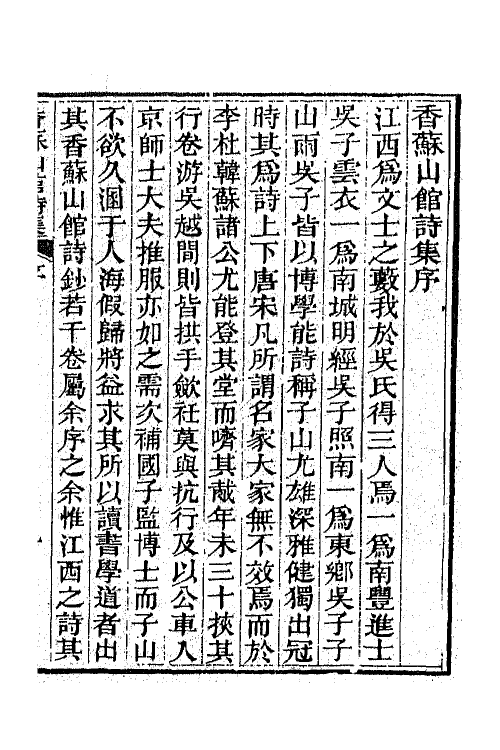 香蘇山館詩集序
江西為文士之藪我於吳氏得三人焉一為南豐進士
吳子雲衣一為南城明經吳子照南一為東鄉吳子子
山兩吳子皆以博學能詩稱子山尤雄深雅健獨出冠
時其為詩上下唐宋凡所謂名家大家無不效焉而於
李杜韓蘇諸公尤能登其堂而嚌其胾年未三十挾其
行卷游吳越間則皆拱手歛社莫與抗行及以公車人
京師士大夫推服亦如之需次補國子監博士而子山
不欲久溷于人海假歸將益求其所以讀書學道者出
其香蘇山館詩鈔若干卷屬余序之余惟江西之詩其
香蘇山館詩集